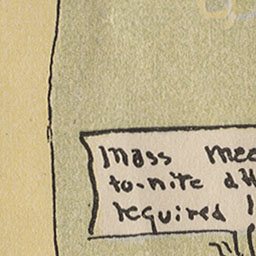 Mass mee
to-nite att
required !